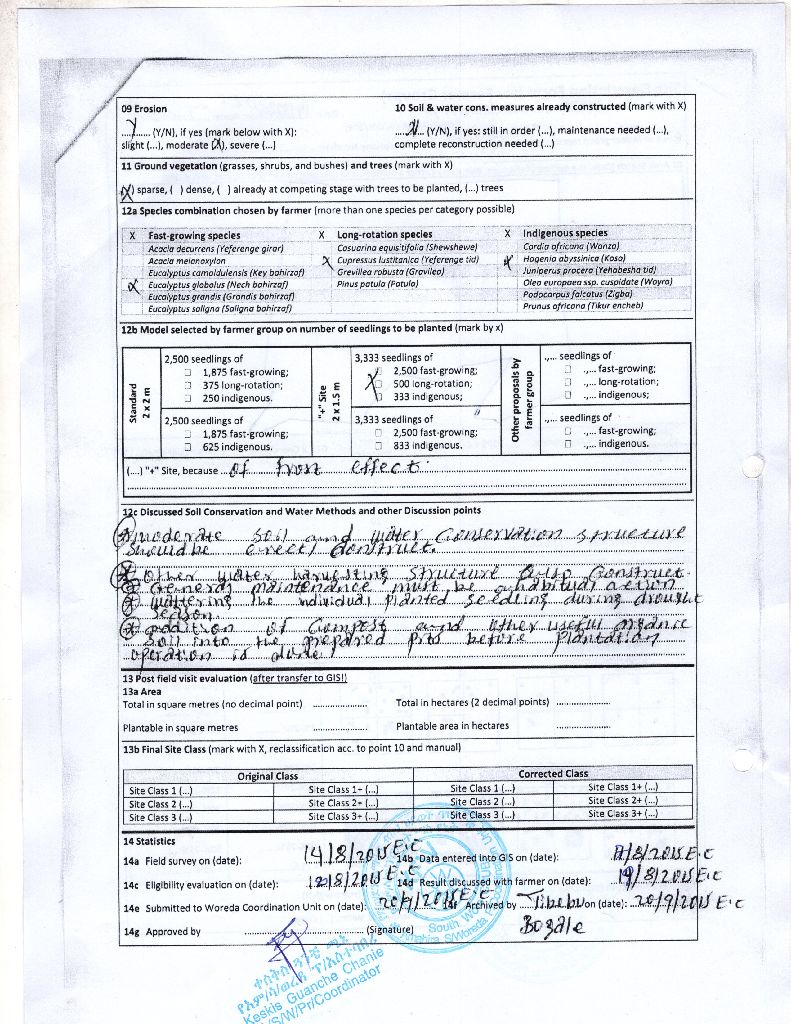 09 Erosion
10 Soil & water cons. measures already constructed (mark with X)
....Y..... (Y/N), if yes (mark below with X):
....N... (Y/N), if yes: still in order (...), maintenance needed (...),
slight (...), moderate (X), severe (...)
complete reconstruction needed (...)
11 Ground vegetation (grasses, shrubs, and bushes) and trees (mark with X)
(X) sparse, ( ) dense, ( ) already at competing stage with trees to be planted, (...) trees
12a Species combination chosen by farmer (more than one species per category possible)
X Fast-growing species X Long-rotation species X Indigenous species
Acacia decurrens (Yeferenge girar) Casuarina equisitifolia (Shewshewe) Cordia africana (Wanza)
Acacia melanoxylon X Cupressus lusitanica (Yeferenge tid) X Hagenia abyssinica (Koso)
Eucalyptus camaldulensis (Key bahirzaf) Grevillea robusta (Gravilea) Juniperus procera (Yehabesha tid)
X Eucalyptus globolus (Nech bahirzaf) Pinus patula (Patula) Olea europaea ssp. cuspidate (Woyra)
Eucalyptus grandis (Grandis bahirzaf) Podocarpus falcatus (Zigba)
Eucalyptus saligna (Saligna bahirzaf) Prunus africana (Tikur encheb)
12b Model selected by farmer group on number of seedlings to be planted (mark by x)
Standard
2 x 2 m
2,500 seedlings of
☐ 1,875 fast-growing;
☐ 375 long-rotation;
☐ 250 indigenous.
2,500 seedlings of
☐ 1,875 fast-growing;
☐ 625 indigenous.
"+" Site
2 x 1.5 m
3,333 seedlings of
☐ 2,500 fast-growing;
X ☐ 500 long-rotation;
☐ 333 indigenous;
3,333 seedlings of
☐ 2,500 fast-growing;
☐ 833 indigenous.
Other proposals by
farmer group
.,... seedlings of
☐ .,... fast-growing;
☐ .,... long-rotation;
☐ .,... indigenous;
.,... seedlings of
☐ .,... fast-growing;
☐ .,... indigenous.
(...) "+" Site, because of frost effect.
12c Discussed Soil Conservation and Water Methods and other Discussion points
moderate soil and water Conservation structure
should be erect/ Construct.
Other water harvesting structure Construct
General maintenance must be a habitual action
wattering the individual planted seedling during drought
season
addition of Compost and other useful organic
soil into the prepared pits before Plantation
operation is
13 Post field visit evaluation (after transfer to GIS!)
13a Area
Total in square metres (no decimal point) .................... Total in hectares (2 decimal points) ....................
Plantable in square metres .................... Plantable area in hectares ....................
13b Final Site Class (mark with X, reclassification acc. to point 10 and manual)
Original Class Corrected Class
Site Class 1 (...) Site Class 1+ (...) Site Class 1 (...) Site Class 1+ (...)
Site Class 2 (...) Site Class 2+ (...) Site Class 2 (...) Site Class 2+ (...)
Site Class 3 (...) Site Class 3+ (...) Site Class 3 (...) Site Class 3+ (...)
14 Statistics
14a Field survey on (date): 14/8/2015 E.C 14b Data entered into GIS on (date): /8/2015 E.C
14c Eligibility evaluation on (date): /8/2015 E.C 14d Result discussed with farmer on (date): 19/8/2015 E.C
14e Submitted to Woreda Coordination Unit on (date): 20/9/2015 E.C 14f Archived by Tibebu on (date): 20/9/2015 E.C
Bogale
14g Approved by .................... (Signature)
Keskis Guanche Chanie
/S/W/Pr/Coordinator